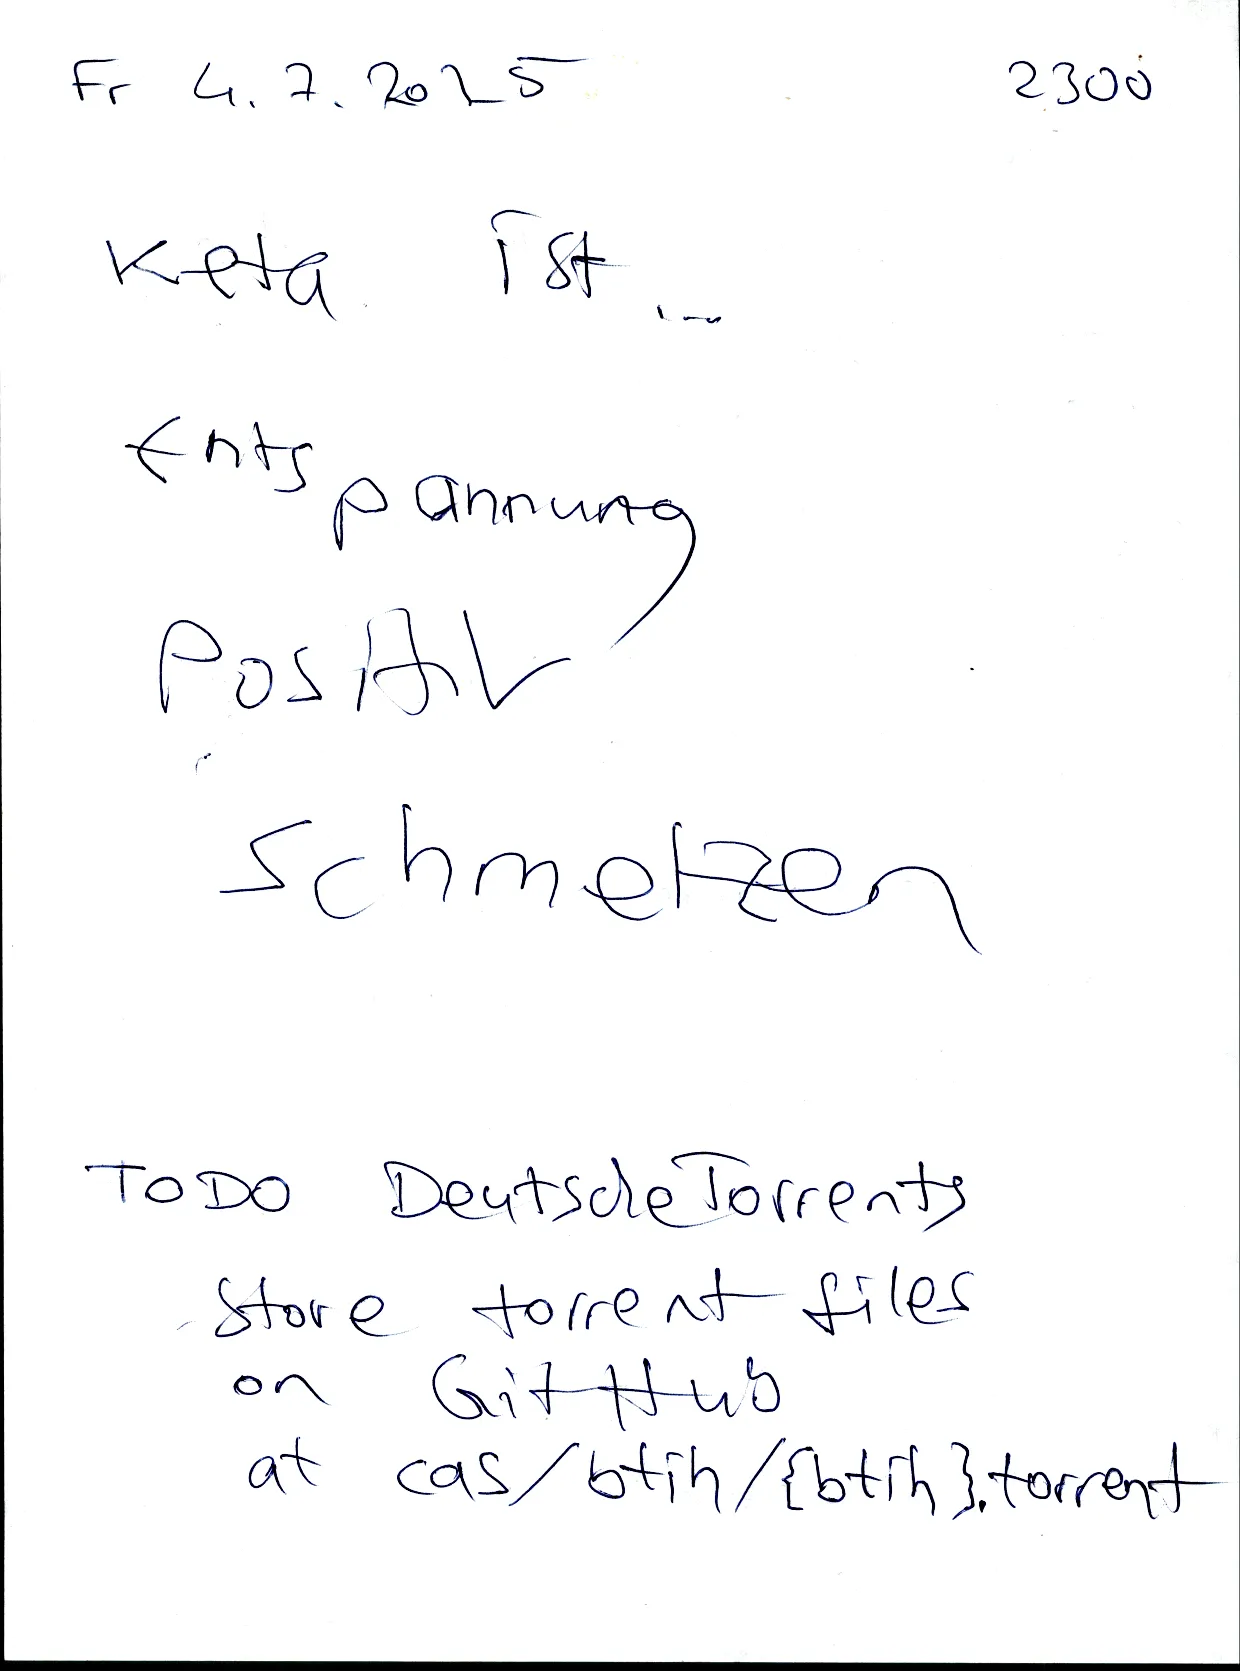 Fr 4.7.2025 2300
Keta ist...
Entspannung
Positiv
Schmelzen
TODO DeutscheTorrents
store torrent files
on GitHub
at cas/btih/{btih}.torrent